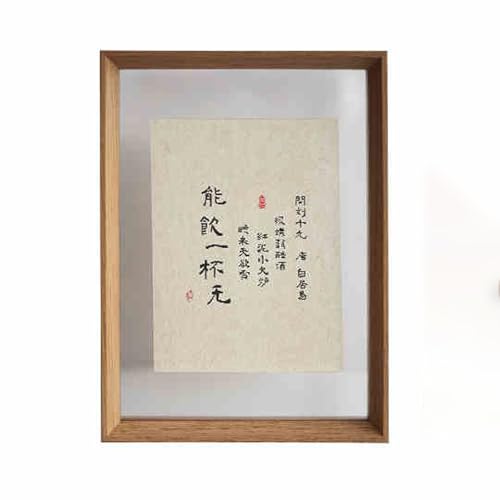 問刘十九 唐 白居易
绿蟻新醅酒
红泥小火炉
晚来天欲雪
能飲一杯无